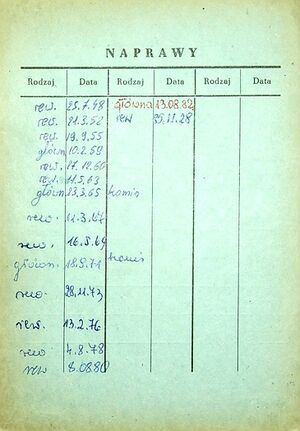 NAPRAWY
Rodzaj Data Rodzaj Data Rodzaj Data
rew. 25.7.48 główna 13.08.82
rew. 21.3.52 rew
rew. 19.9.55
główn 10.2.59
rew. 17.12.60
rew. 11.5.63
główn. 23.3.65 komis
rew. 11.3.67
rew. 16.5.69
główn. 18.9.71 komis
rew. 28.11.73
rew. 13.2.76
rew 4.8.78
rew 8.0880